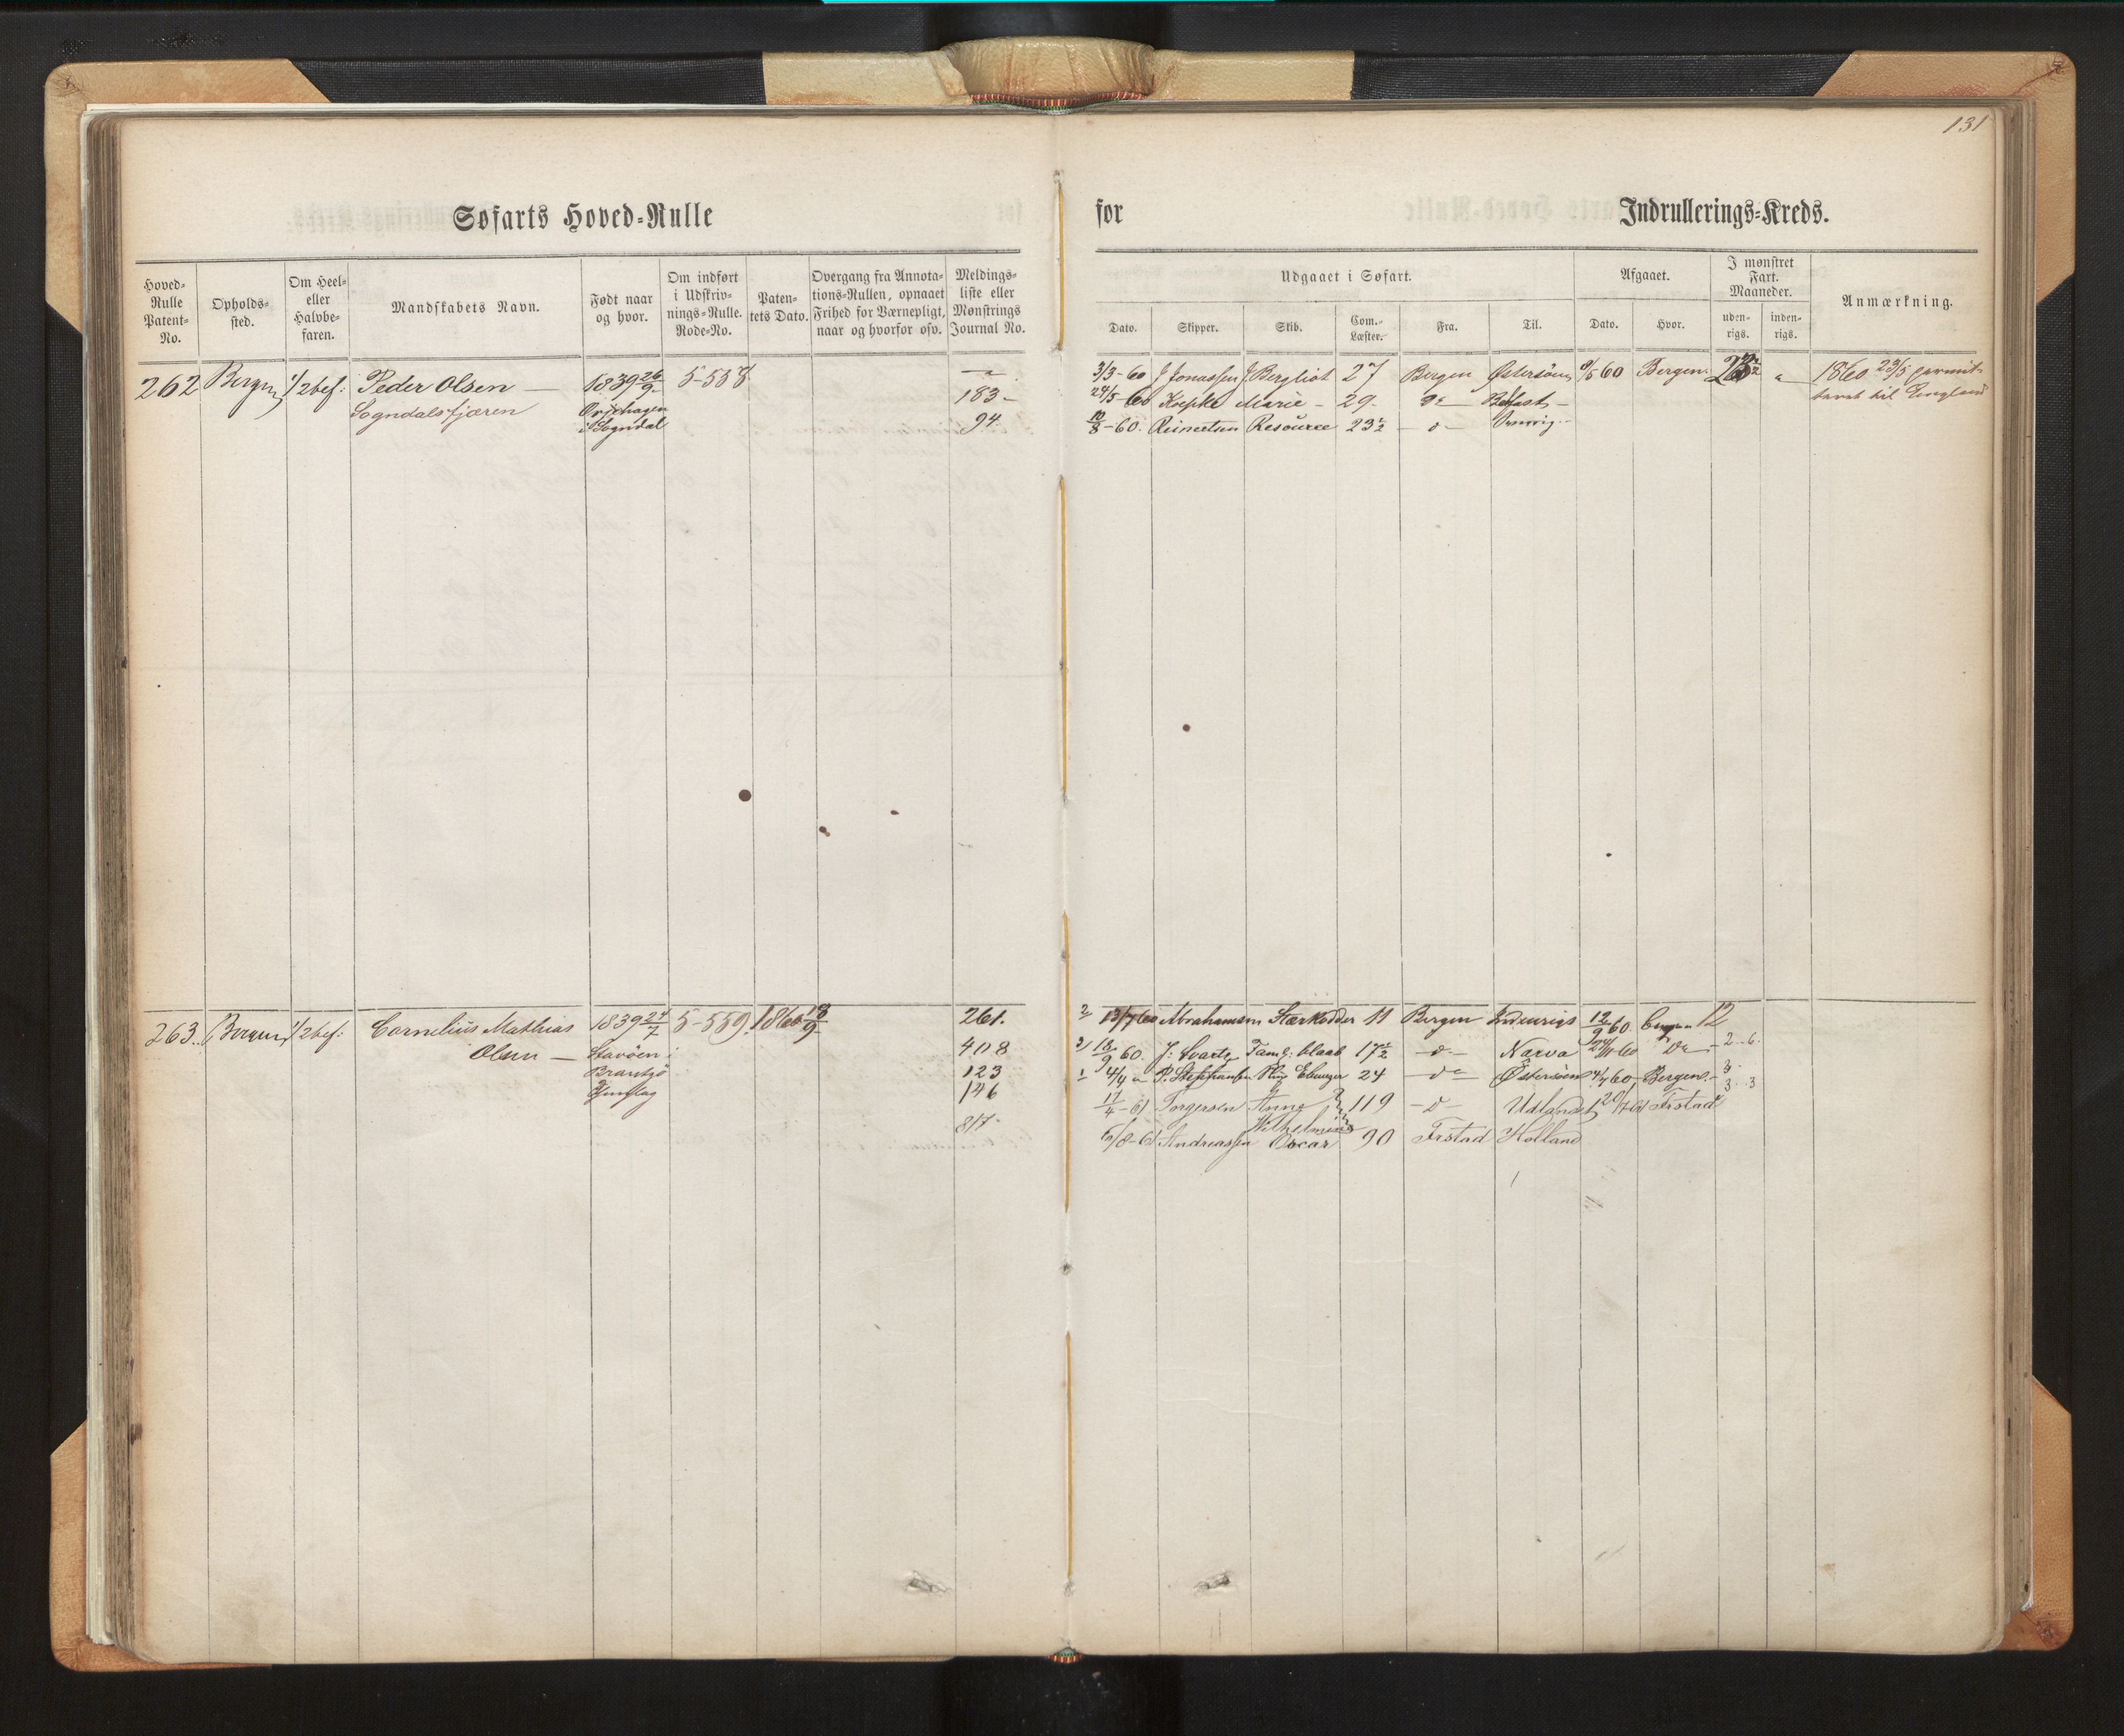 131
Søfarts Hoved-Rulle
for
Indrullerings-Kreds.
Hoved-Rulle Patent-No.
Opholds-sted.
Om Heel- eller Halvbe-faren.
Mandskabets Navn.
Født naar og hvor.
Om indført i Udskriv-nings-Rulle. Rode-No.
Paten-tets Dato.
Overgang fra Annota-tions-Rullen, opnaaet Frihed for Værnepligt, naar og hvorfor osv.
Meldings-liste eller Mønstrings Journal No.
Udgaaet i Søfart.
Dato.
Skipper.
Skib.
Com.-Læster.
Fra.
Til.
Afgaaet.
Dato.
Hvor.
I mønstret Fart. Maaneder.
uden-rigs.
inden-rigs.
Anmærkning.
262 Bergen 1/2 bef: Peder Olsen — 1839 26/9 5-558
Sogndalsfjæren
i Sogndal
183
94
3/3-60 J Jonassen Bergliot 27 Bergen Østersøen 60 Bergen 1860 23/5
24/5-60 Koepke Marie 29 Belfast til England
10/8-60 Reinertsen Resource 23½
263 Bergen 1/2 bef: Cornelius Mathias 1839 24/7 5-559 1860 18/9 261.
Olsen — 408
123
146
817
2 13/7 60 Abrahamsen Stærkodder 11 Bergen Indenrigs 12/9 60 12
18/9 60 J: Svarte 17½ Narva 24/11 60 2..6.
1 4/4 P. Steffensen 24 Østersøen 60, Bergen 3
17/4-61 Torgersen Anna 119 Udlandet 20/7 61 Frstad 3..3
Wilhelmina
6/8-61 Andreassen Oscar 90 Frstad Holland